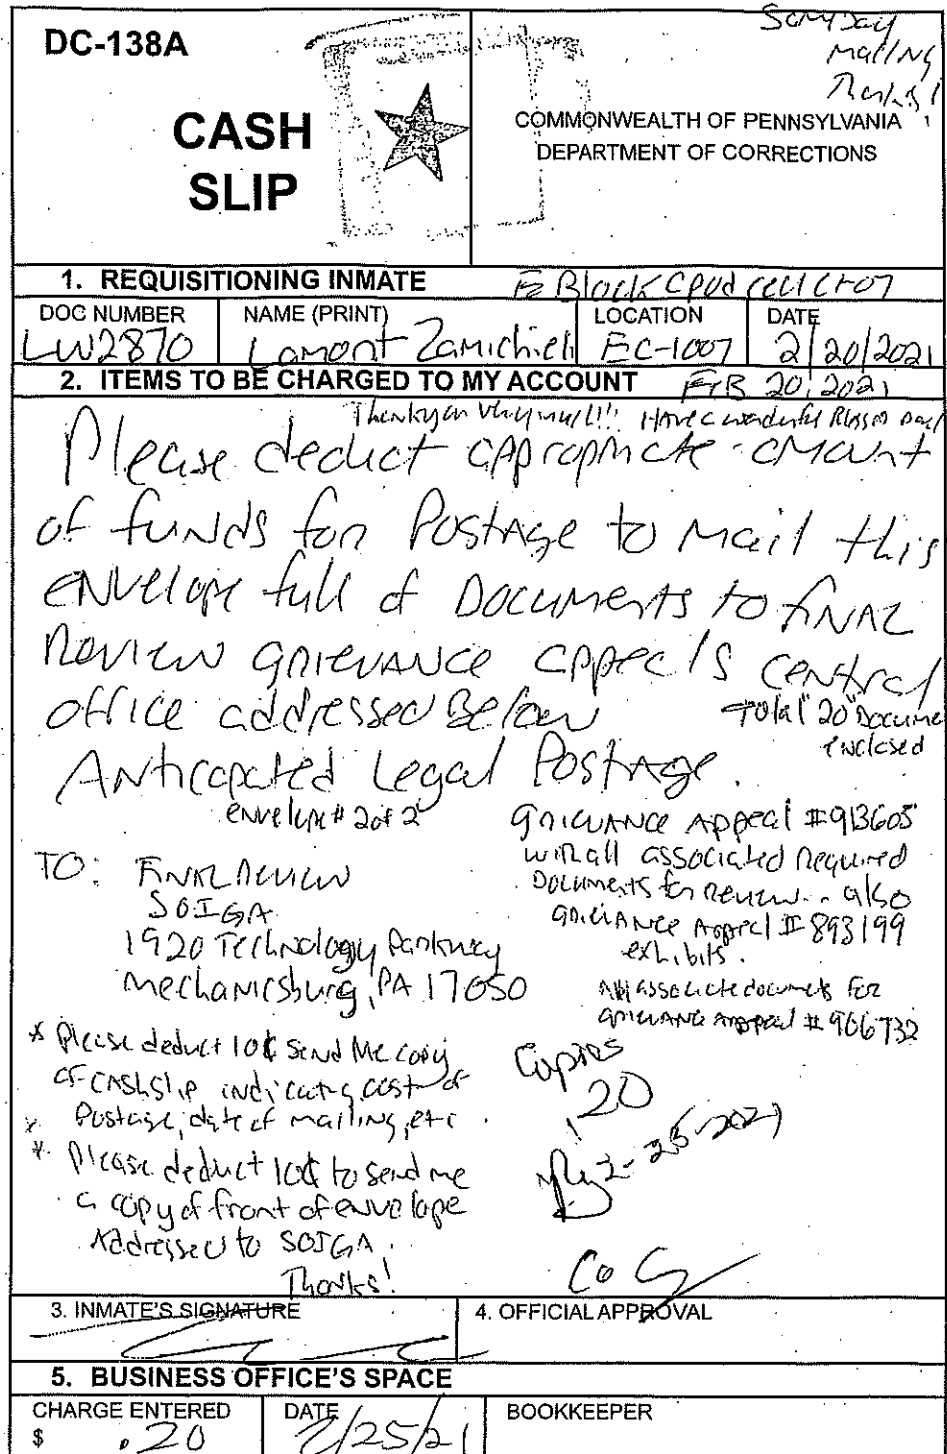 Same Day
Mailing
Thanks!
DC-138A
CASH
SLIP
COMMONWEALTH OF PENNSYLVANIA
DEPARTMENT OF CORRECTIONS
1. REQUISITIONING INMATE
Block C Pod cell
DOC NUMBER
NAME (PRINT)
LOCATION
DATE
LW2870
Lamont Zamichieli
EC-1007
2/20/2021
2. ITEMS TO BE CHARGED TO MY ACCOUNT
FEB 20, 2021
Thank you very much!!! Have a wonderful Blessed Day!
Please deduct appropriate amount
of funds for Postage to mail this
envelope full of Documents to final
Review grievance appeals central
office addressed Below
Total "20" Docume
enclosed
Anticapated Legal Postage.
envelope # 2 of 2
TO: Final Review
SOIGA
1920 Technology Parkway
Mechanicsburg, PA 17050
grievance Appeal #913605
with all associated required
Documents for review.. also
grievance Appeal # 893199
exhibits.
All associate documents for
grievance appeal # 906732
* Please deduct 10¢ send me copy
of cashslip indicating cost of
Postage, date of mailing, etc.
* Please deduct 10¢ to send me
a copy of front of envelope
Addressed to SOIGA.
Thanks!
Copies
.20
2-25-2021
3. INMATE'S SIGNATURE
4. OFFICIAL APPROVAL
5. BUSINESS OFFICE'S SPACE
CHARGE ENTERED
DATE
BOOKKEEPER
$ .20
2/25/21